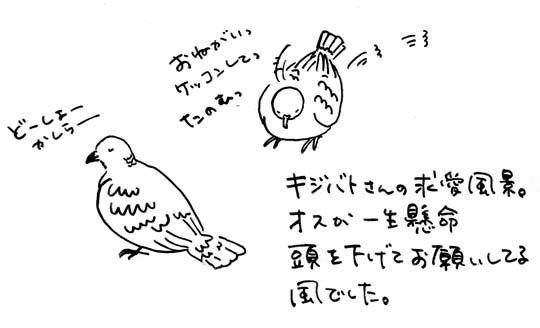 おねがいっ
ケッコンしてっ
たのむっ
どーしょー
かしらー
キジバトさんの求愛風景。
オスが一生懸命
頭を下げてお願いしてる
風でした。